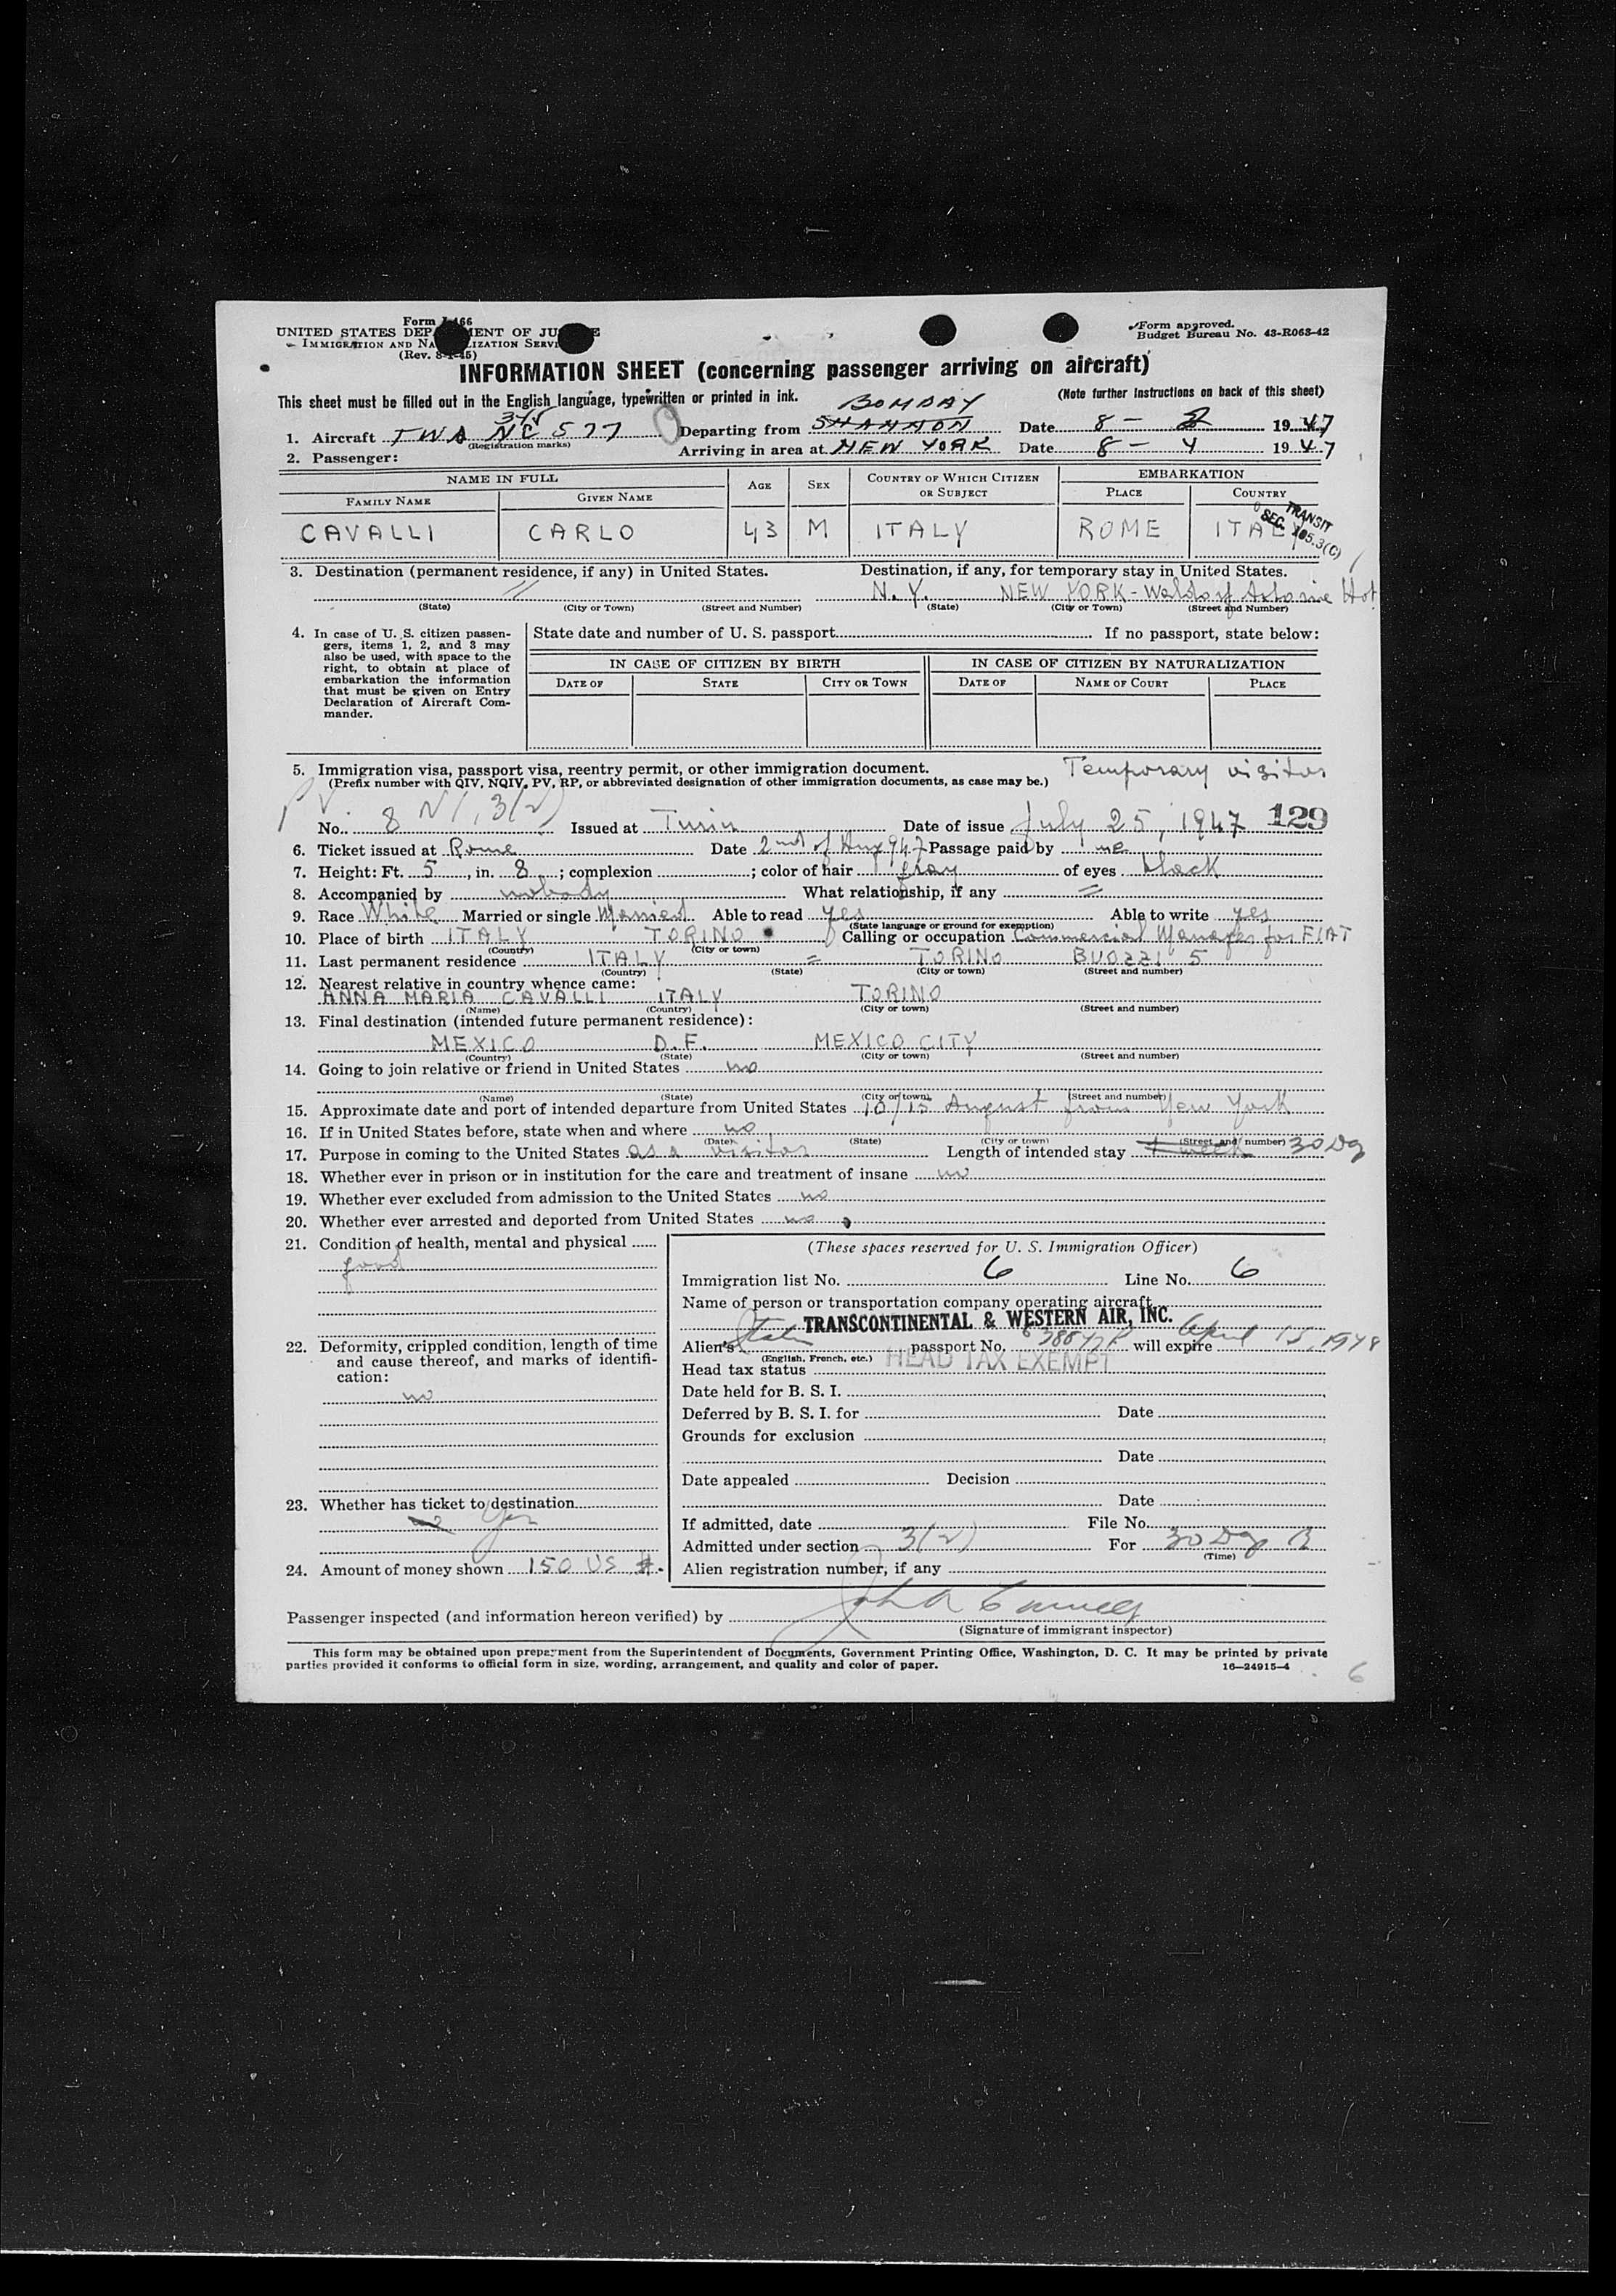 Form I-466
UNITED STATES DEPARTMENT OF JUSTICE
IMMIGRATION AND NATURALIZATION SERVICE
(Rev. 8-1-45)
Form approved.
Budget Bureau No. 43-R063-42
INFORMATION SHEET (concerning passenger arriving on aircraft)
This sheet must be filled out in the English language, typewritten or printed in ink.
(Note further instructions on back of this sheet)
BOMBAY
1. Aircraft TWA NC 577 Departing from SHANNON Date 8 - 2 1947
(Registration marks)
2. Passenger: Arriving in area at NEW YORK Date 8 - 4 1947
NAME IN FULL AGE SEX COUNTRY OF WHICH CITIZEN OR SUBJECT EMBARKATION
FAMILY NAME GIVEN NAME PLACE COUNTRY
TRANSIT
SEC. 105.3(C)
CAVALLI CARLO 43 M ITALY ROME ITALY
3. Destination (permanent residence, if any) in United States. Destination, if any, for temporary stay in United States.
N. Y. NEW YORK - Waldorf Astorie Hot
(State) (City or Town) (Street and Number) (State) (City or Town) (Street and Number)
4. In case of U. S. citizen passen-
gers, items 1, 2, and 3 may
also be used, with space to the
right, to obtain at place of
embarkation the information
that must be given on Entry
Declaration of Aircraft Com-
mander.
State date and number of U. S. passport If no passport, state below:
IN CASE OF CITIZEN BY BIRTH IN CASE OF CITIZEN BY NATURALIZATION
DATE OF STATE CITY OR TOWN DATE OF NAME OF COURT PLACE
5. Immigration visa, passport visa, reentry permit, or other immigration document. Temporary visitor
(Prefix number with QIV, NQIV, PV, RP, or abbreviated designation of other immigration documents, as case may be.)
PV
No. 8 NI, 3(2) Issued at Turin Date of issue July 25, 1947 129
6. Ticket issued at Rome Date 2nd of Aug 947 Passage paid by me
7. Height: Ft. 5, in. 8; complexion ; color of hair gray of eyes black
8. Accompanied by nobody What relationship, if any =
9. Race White Married or single Married Able to read yes Able to write yes
(State language or ground for exemption)
10. Place of birth ITALY TORINO Calling or occupation Commercial Manager for FIAT
(Country) (City or town)
11. Last permanent residence ITALY = TORINO BUOZZI 5
(Country) (State) (City or town) (Street and number)
12. Nearest relative in country whence came:
ANNA MARIA CAVALLI ITALY TORINO
(Name) (Country) (City or town) (Street and number)
13. Final destination (intended future permanent residence):
MEXICO D.F. MEXICO CITY
(Country) (State) (City or town) (Street and number)
14. Going to join relative or friend in United States no
(Name) (State) (City or town) (Street and number)
15. Approximate date and port of intended departure from United States 10/15 August from New York
16. If in United States before, state when and where no
(Date) (State) (City or town) (Street and number)
17. Purpose in coming to the United States as a visitor Length of intended stay 1 week 30 Dy
18. Whether ever in prison or in institution for the care and treatment of insane no
19. Whether ever excluded from admission to the United States no
20. Whether ever arrested and deported from United States no
21. Condition of health, mental and physical
good
22. Deformity, crippled condition, length of time
and cause thereof, and marks of identifi-
cation:
no
23. Whether has ticket to destination
no Yes
24. Amount of money shown 150 US $.
(These spaces reserved for U. S. Immigration Officer)
Immigration list No. 6 Line No. 6
Name of person or transportation company operating aircraft
TRANSCONTINENTAL & WESTERN AIR, INC.
Alien's passport No. will expire April 15, 1948
(English, French, etc.)
HEAD TAX EXEMPT
Head tax status
Date held for B. S. I.
Deferred by B. S. I. for Date
Grounds for exclusion
Date
Date appealed Decision
Date
If admitted, date File No.
Admitted under section 3(2) For 30 Dy B
(Time)
Alien registration number, if any
Passenger inspected (and information hereon verified) by
(Signature of immigrant inspector)
This form may be obtained upon prepayment from the Superintendent of Documents, Government Printing Office, Washington, D. C. It may be printed by private
parties provided it conforms to official form in size, wording, arrangement, and quality and color of paper.
16—24915-4
6